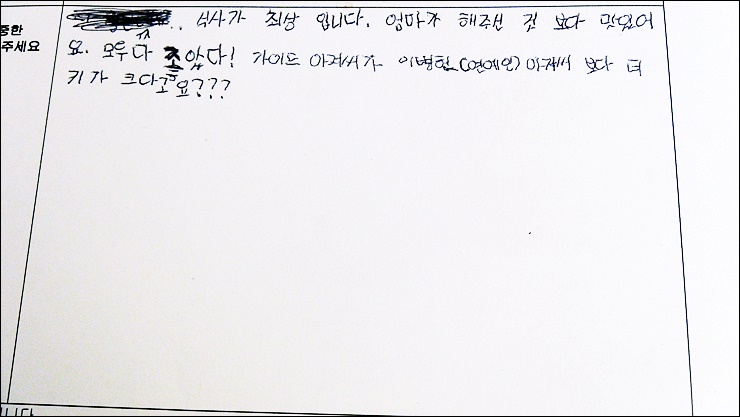 중한
주세요
.. 식사가 최상 입니다. 엄마가 해주신 것 보다 맛있어
요. 모두다 조았다! 가이드 아저씨가 이병헌(연예인)아저씨 보다 더
키가 크다고요???
니다